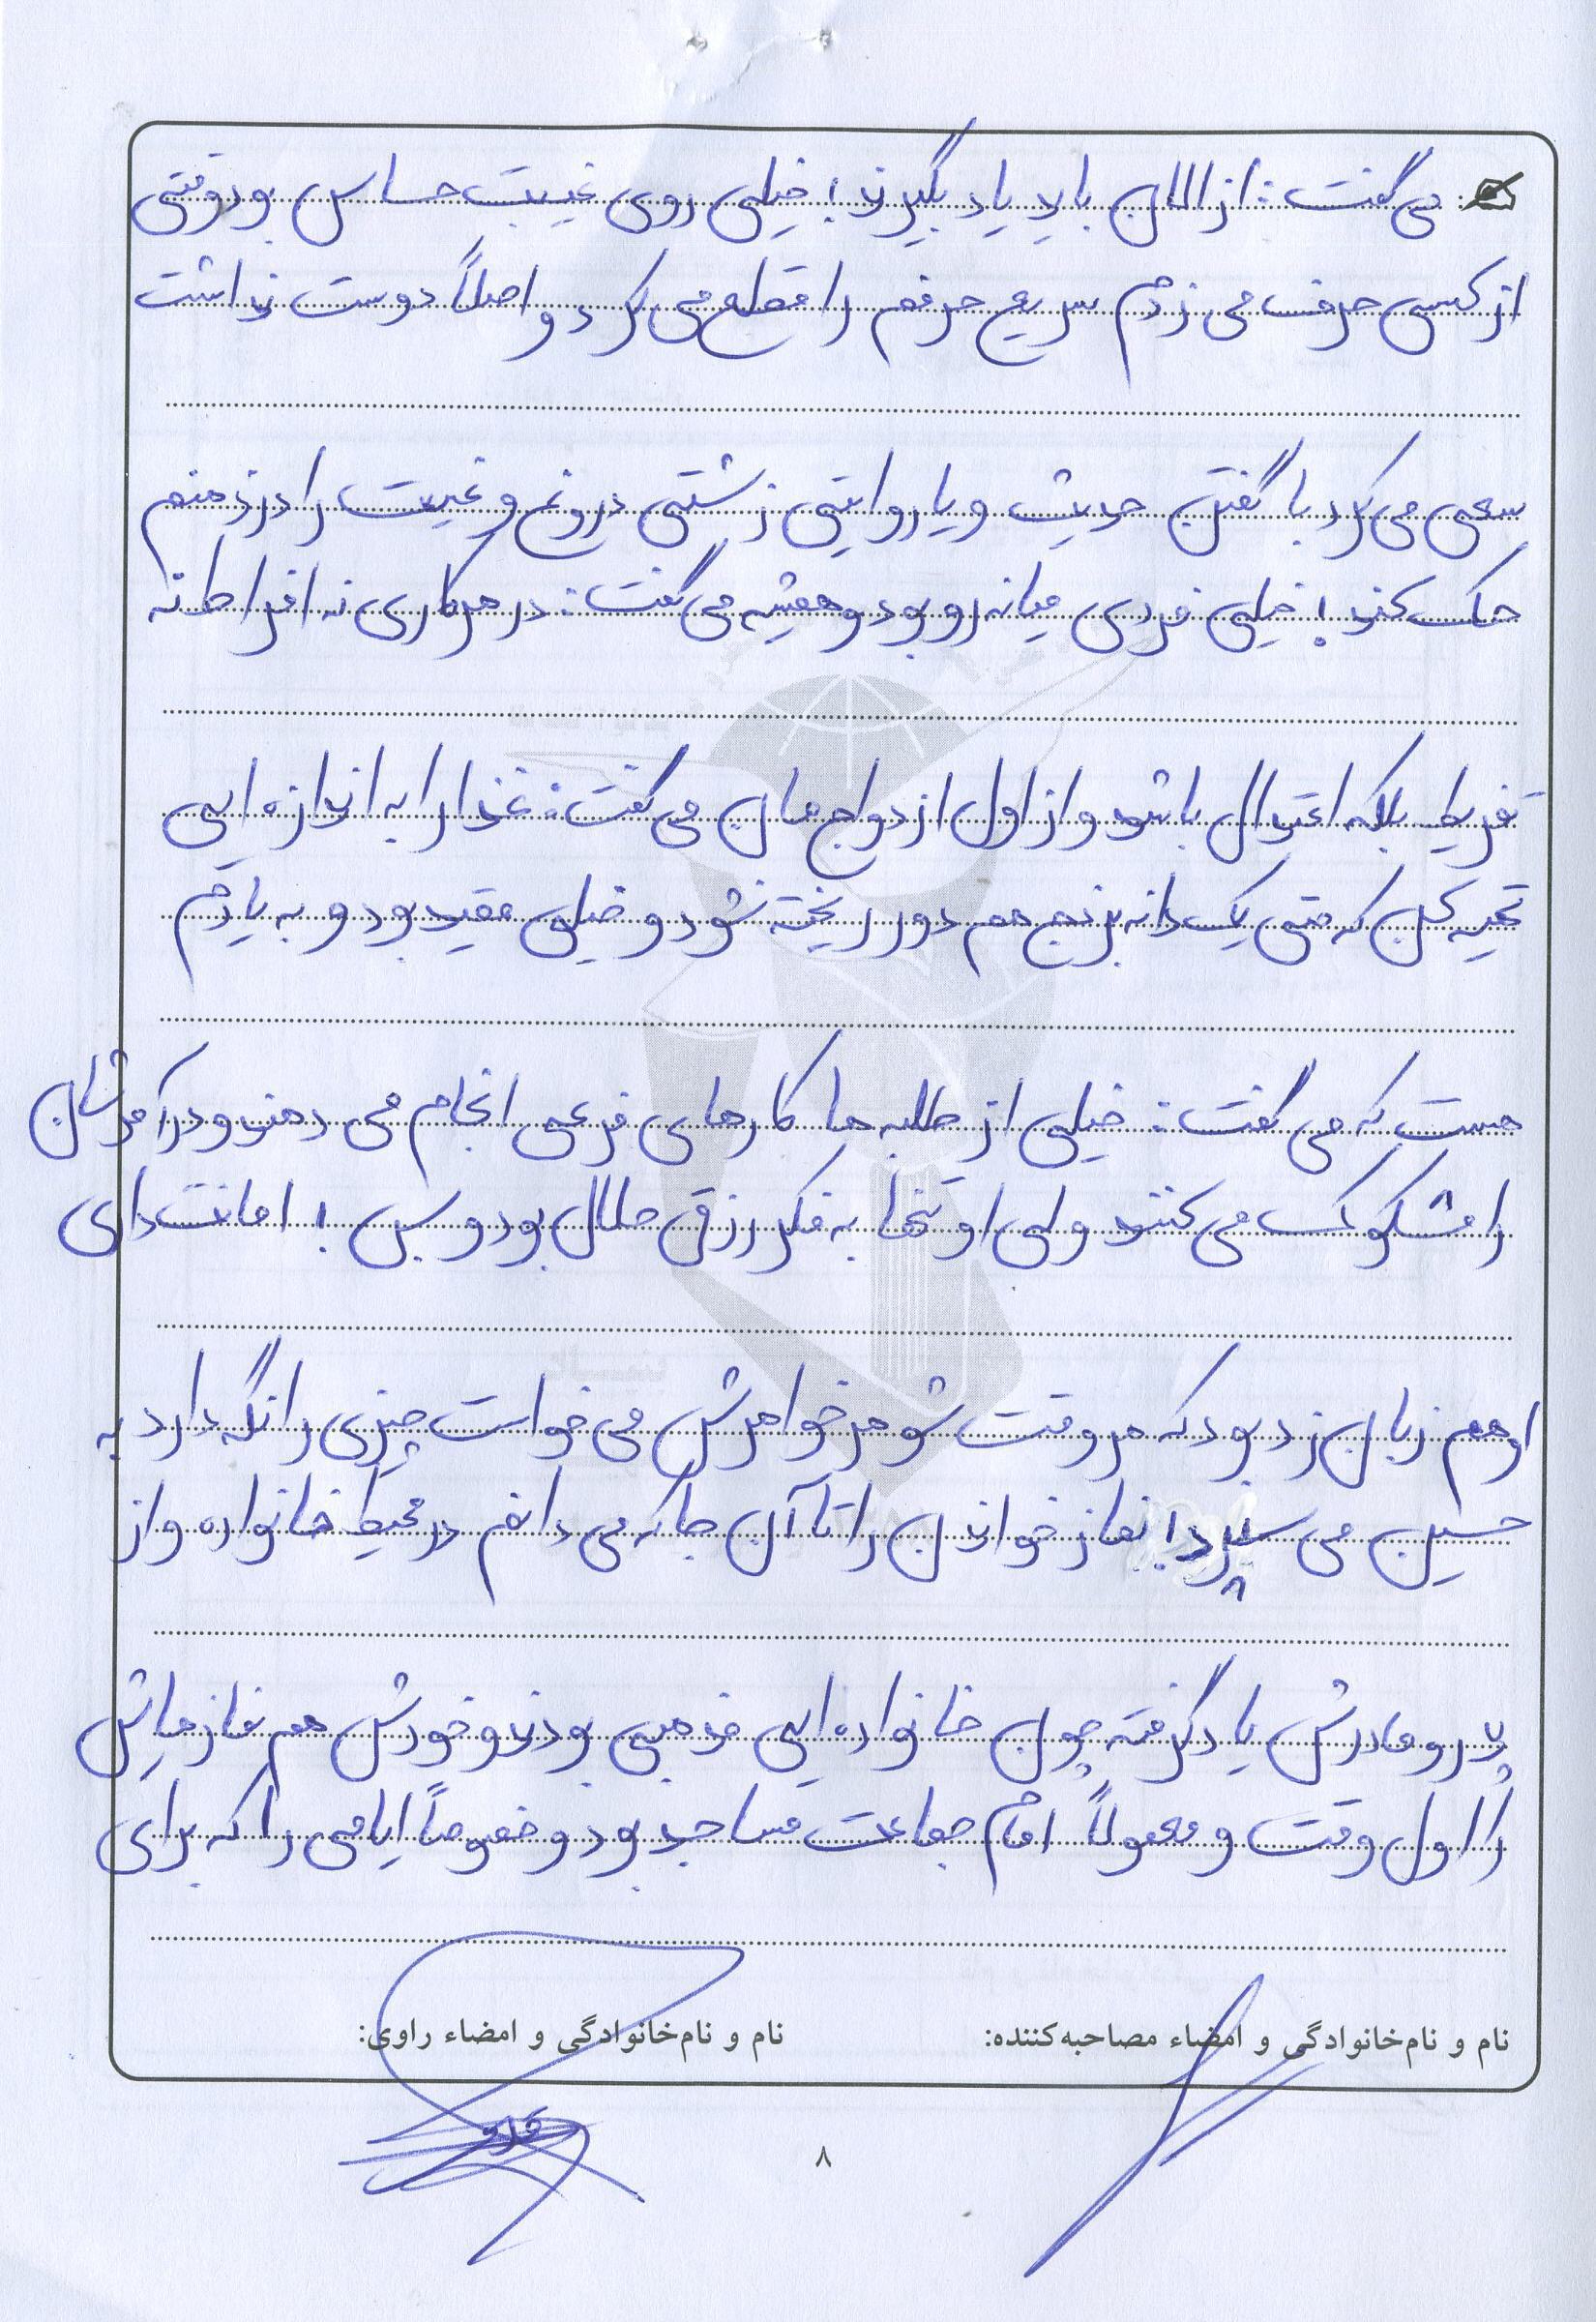 می‌گفت: از الان باید یاد بگیرند! خیلی روی غیبت حساس بود وقتی
از کسی حرف می زدم سریع حرفم را قطع می کرد و اصلاً دوست نداشت
سعی می کرد با گفتن حدیث و یا روایتی زشتی دروغ و غیبت را در ذهنم
حک کند! خیلی فردی میانه رو بود و همیشه می گفت: در هر کاری نه افراط نه
تفریط بلکه اعتدال باشد و از اول ازدواج مان می گفت: غذا را به اندازه ایی
تهیه کن که حتی یک دانه برنج هم دور ریخته نشود و خیلی مقید بود و به یادم
هست که می گفت: خیلی از طلبه ها کارهای فرعی انجام می دهند و درآمدشان
را مشکوک می کنند ولی او تنها به فکر رزق حلال بود و بس! امانت داری
او هم زبان زد بود که هر وقت شوهر خواهرش می خواست چیزی را نگه دارد به
حسین می سپرد! نماز خواندن را تا آن جا که می دانم در محیط خانواده و از
پدر و مادرش یاد گرفته چون خانواده ایی مذهبی بودند و خودش هم نمازهایش
را اول وقت و معمولاً امام جماعت مساجد بود و خصوصاً ایامی را که برای
نام و نام‌خانوادگی و امضاء مصاحبه‌کننده:
نام و نام‌خانوادگی و امضاء راوی:
۸